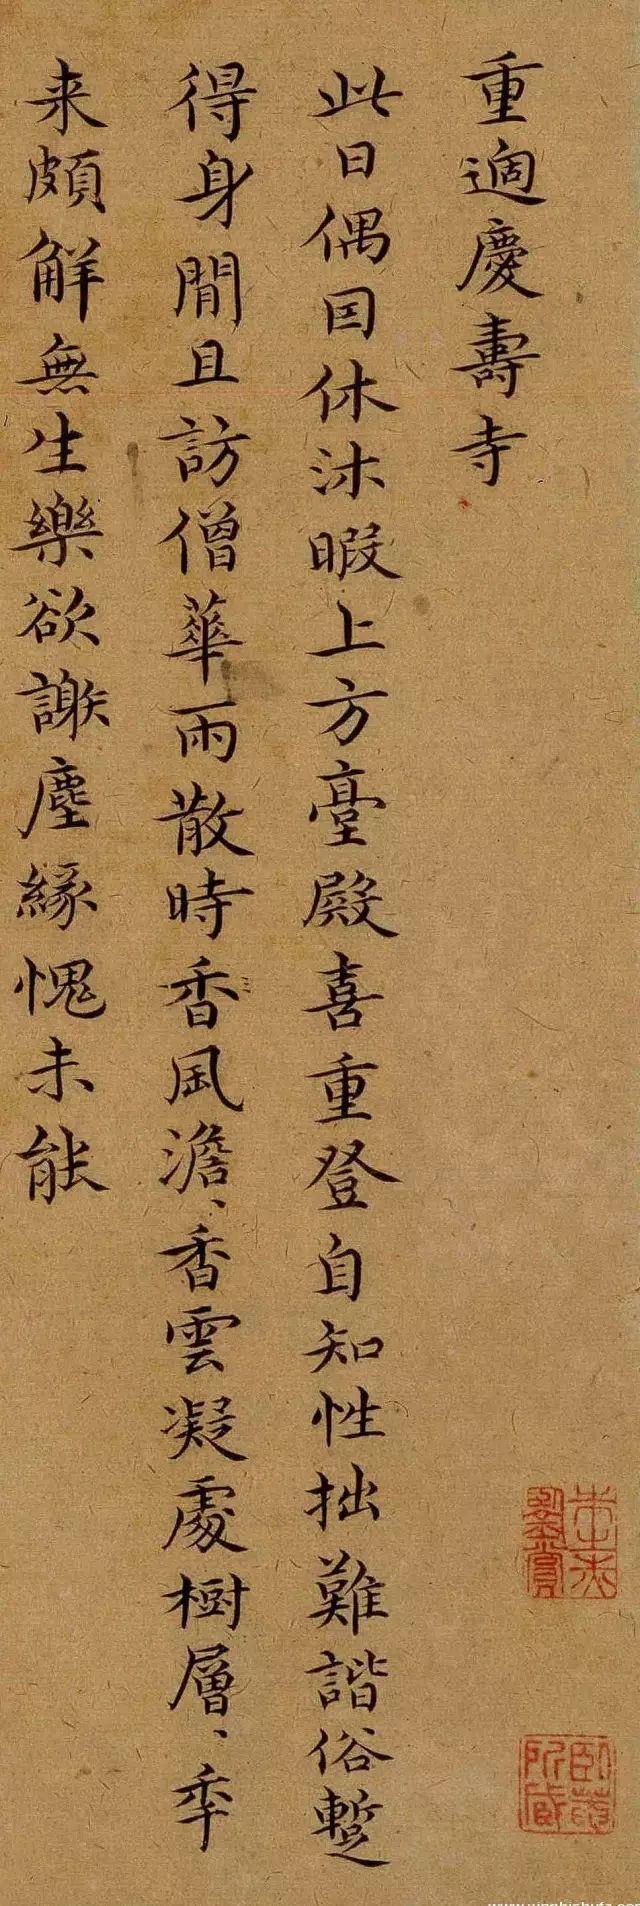 重過慶壽寺
此日偶因休沐暇上方臺殿喜重登自知性拙難諧俗暫
得身閒且訪僧華雨散時香風澹、香雲凝處樹層、秊
来頗解無生樂欲謝塵緣愧未能
朱之赤鑒賞
卧菴所藏